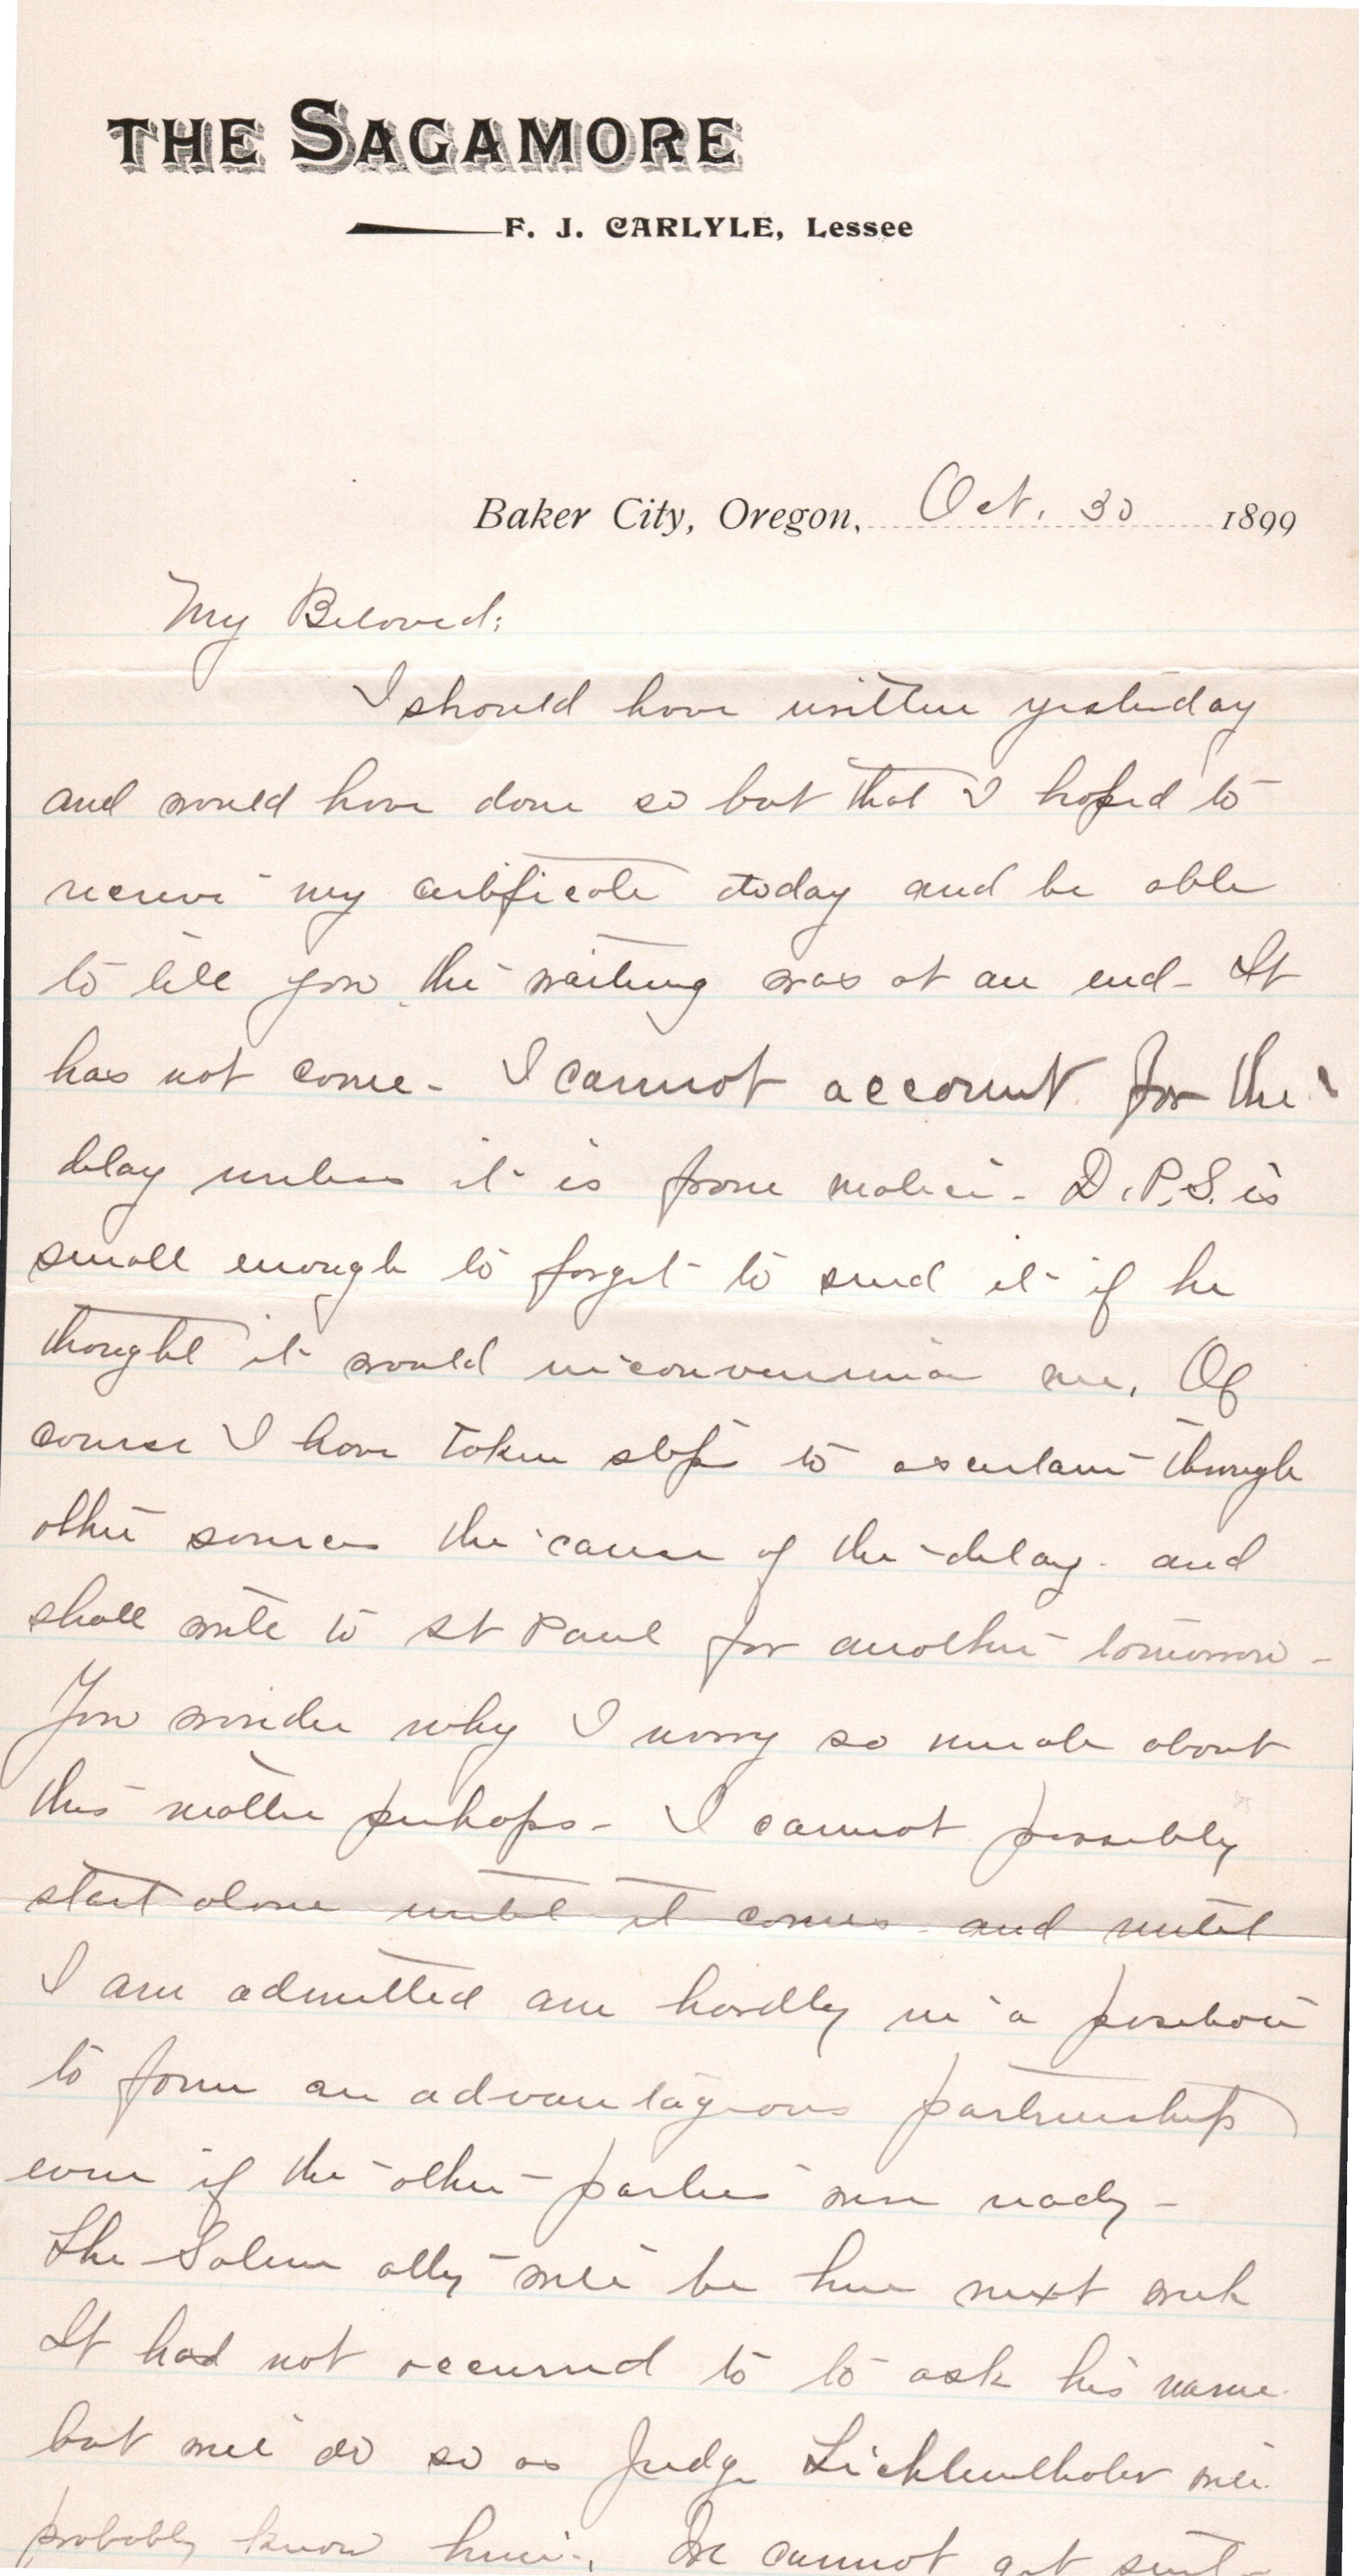 THE SAGAMORE
F. J. CARLYLE, Lessee
Baker City, Oregon, Oct. 30 1899
My Beloved;
I should have written yesterday
and would have done so but that I hoped to
receive my certificate today and be able
to tell you the waiting was at an end - It
has not come - I cannot account for the
delay unless it is from malice - D.P.S. is
small enough to forget to send it if he
thought it would inconvenience me. Of
course I have taken steps to ascertain through
other sources the cause of the delay - and
shall write to St Paul for another tomorrow -
You wonder why I worry so much about
this matter perhaps - I cannot possibly
start alone until it comes - and until
I am admitted am hardly in a position
to form an advantageous partnership
even if the other parties were ready -
The Salem atty will be here next week
It had not occurred to to ask his name
but will do so as Judge Lichtenthaler will
probably know him. We cannot get suit-